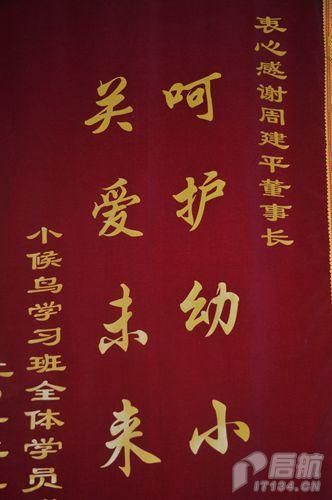 衷心感谢周建平董事长
呵护幼小
关爱未来
小候鸟学习班全体学员
启航
IT134.CN